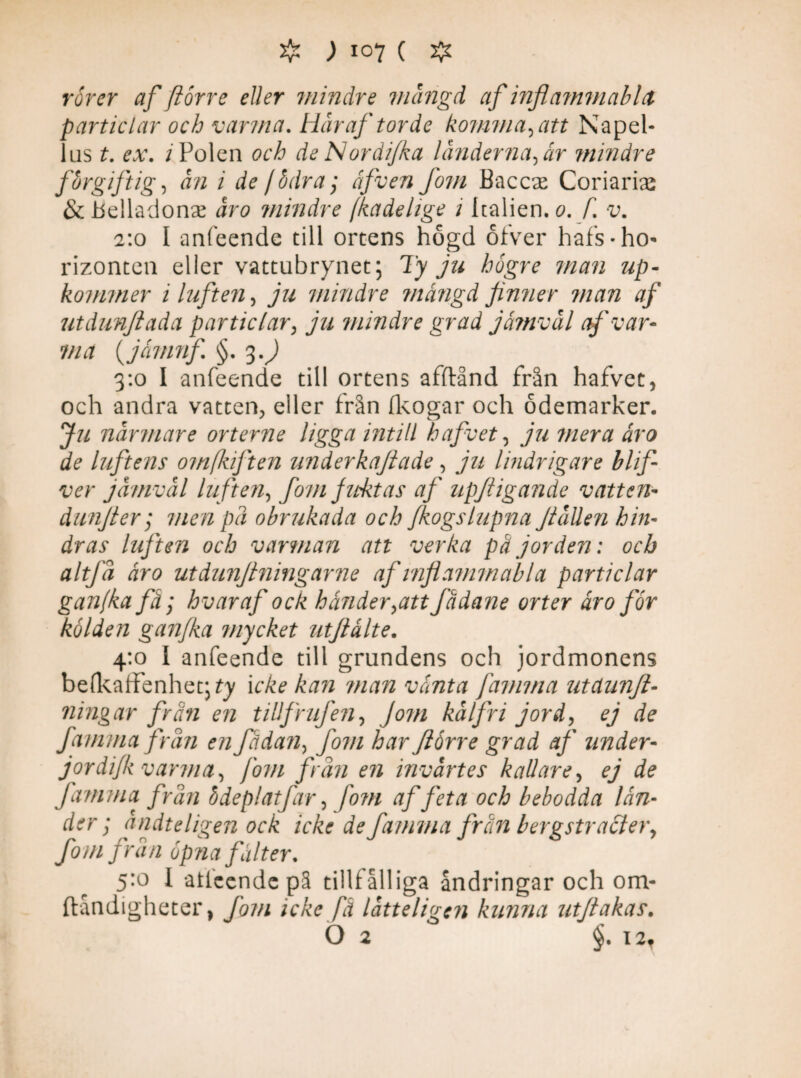 ☆ ) 107 ( ☆
rörer af ſtörre eller mindre mängd af inflammabla
particlar och varma. Häraf torde komma, att Napel-
lus t. ex. i Polen och de Nordiſka länderna, är mindre
förgiftig, än i de ſödra; äfven ſom Baccæ Coriariæ
& Belladonæ äro mindre ſkadelige i Italien. o. ſ. v.
2:o I anſeende till ortens högd öfver hafs-ho-
rizonten eller vattubrynet; Ty ju högre man up-
kommer i luften, ju mindre mängd finner man af
utdunſtada particlar, ju mindre grad jämväl af var-
ma (jämnf. §. 3.)
3:o I anſeende till ortens afſtånd från hafvet,
och andra vatten, eller från ſkogar och ödemarker.
Ju närmare orterne ligga intill hafvet, ju mera äro
de luftens omſkiften underkaſtade, ju lindrigare blif-
ver jämväl luften, ſom fuktas af upſtigande vatten-
dunſter; men på obrukada och ſkogslupna ſtällen hin-
dras luften och varman att verka på jorden: och
altſå äro utdunſtningarne af inflammabla particlar
ganſka få; hvaraf ock händer, att ſådane orter äro för
kölden ganſka mycket utſtälte.
4:o I anſeende till grundens och jordmonens
beſkaffenhet; ty icke kan man vänta ſamma utdunſt-
ningar från en tillfruſen, ſom kälfri jord, ej de
ſamma från en ſådan, ſom har ſtörre grad af under-
jordiſk varma, ſom från en invärtes kallare, ej de
ſamma från ödeplatſar, ſom af feta och bebodda län-
der; ändteligen ock icke de ſamma från bergstracter,
ſom från öpna fälter.
5:o I atſeende på tillfälliga ändringar och om-
ſtändigheter, ſom icke få lätteligen kunna utſtakas.
O 2 §. 12.